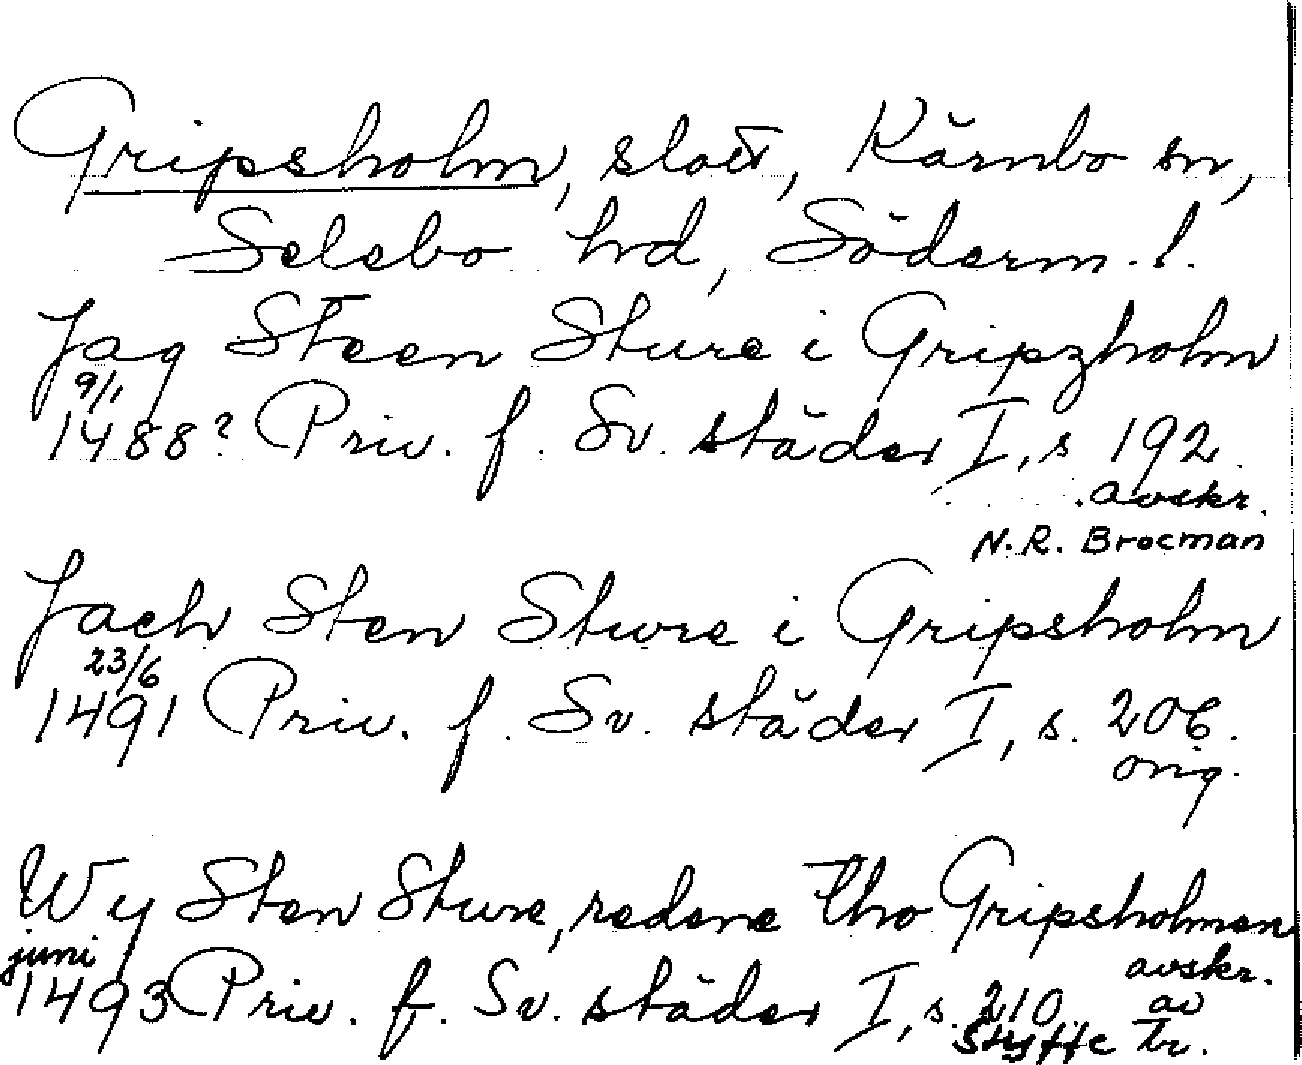 Gripsholm, slott, Kärnbo sn,
Selebo hd, Söderm. l.
Jag Steen Sture i Gripzholm
9/1
1488? Priv. f. Sv. städer I, s 192.
avskr.
N. R. Brocman
Jach Sten Sture i Gripsholm
23/6
1491 Priv. f. Sv. städer I, s. 206.
orig.
Wy Sten Sture, redene tho Gripsholmen
juni avskr.
1493 Priv. f. Sv. städer I, s. 210 av
Styffe tr.